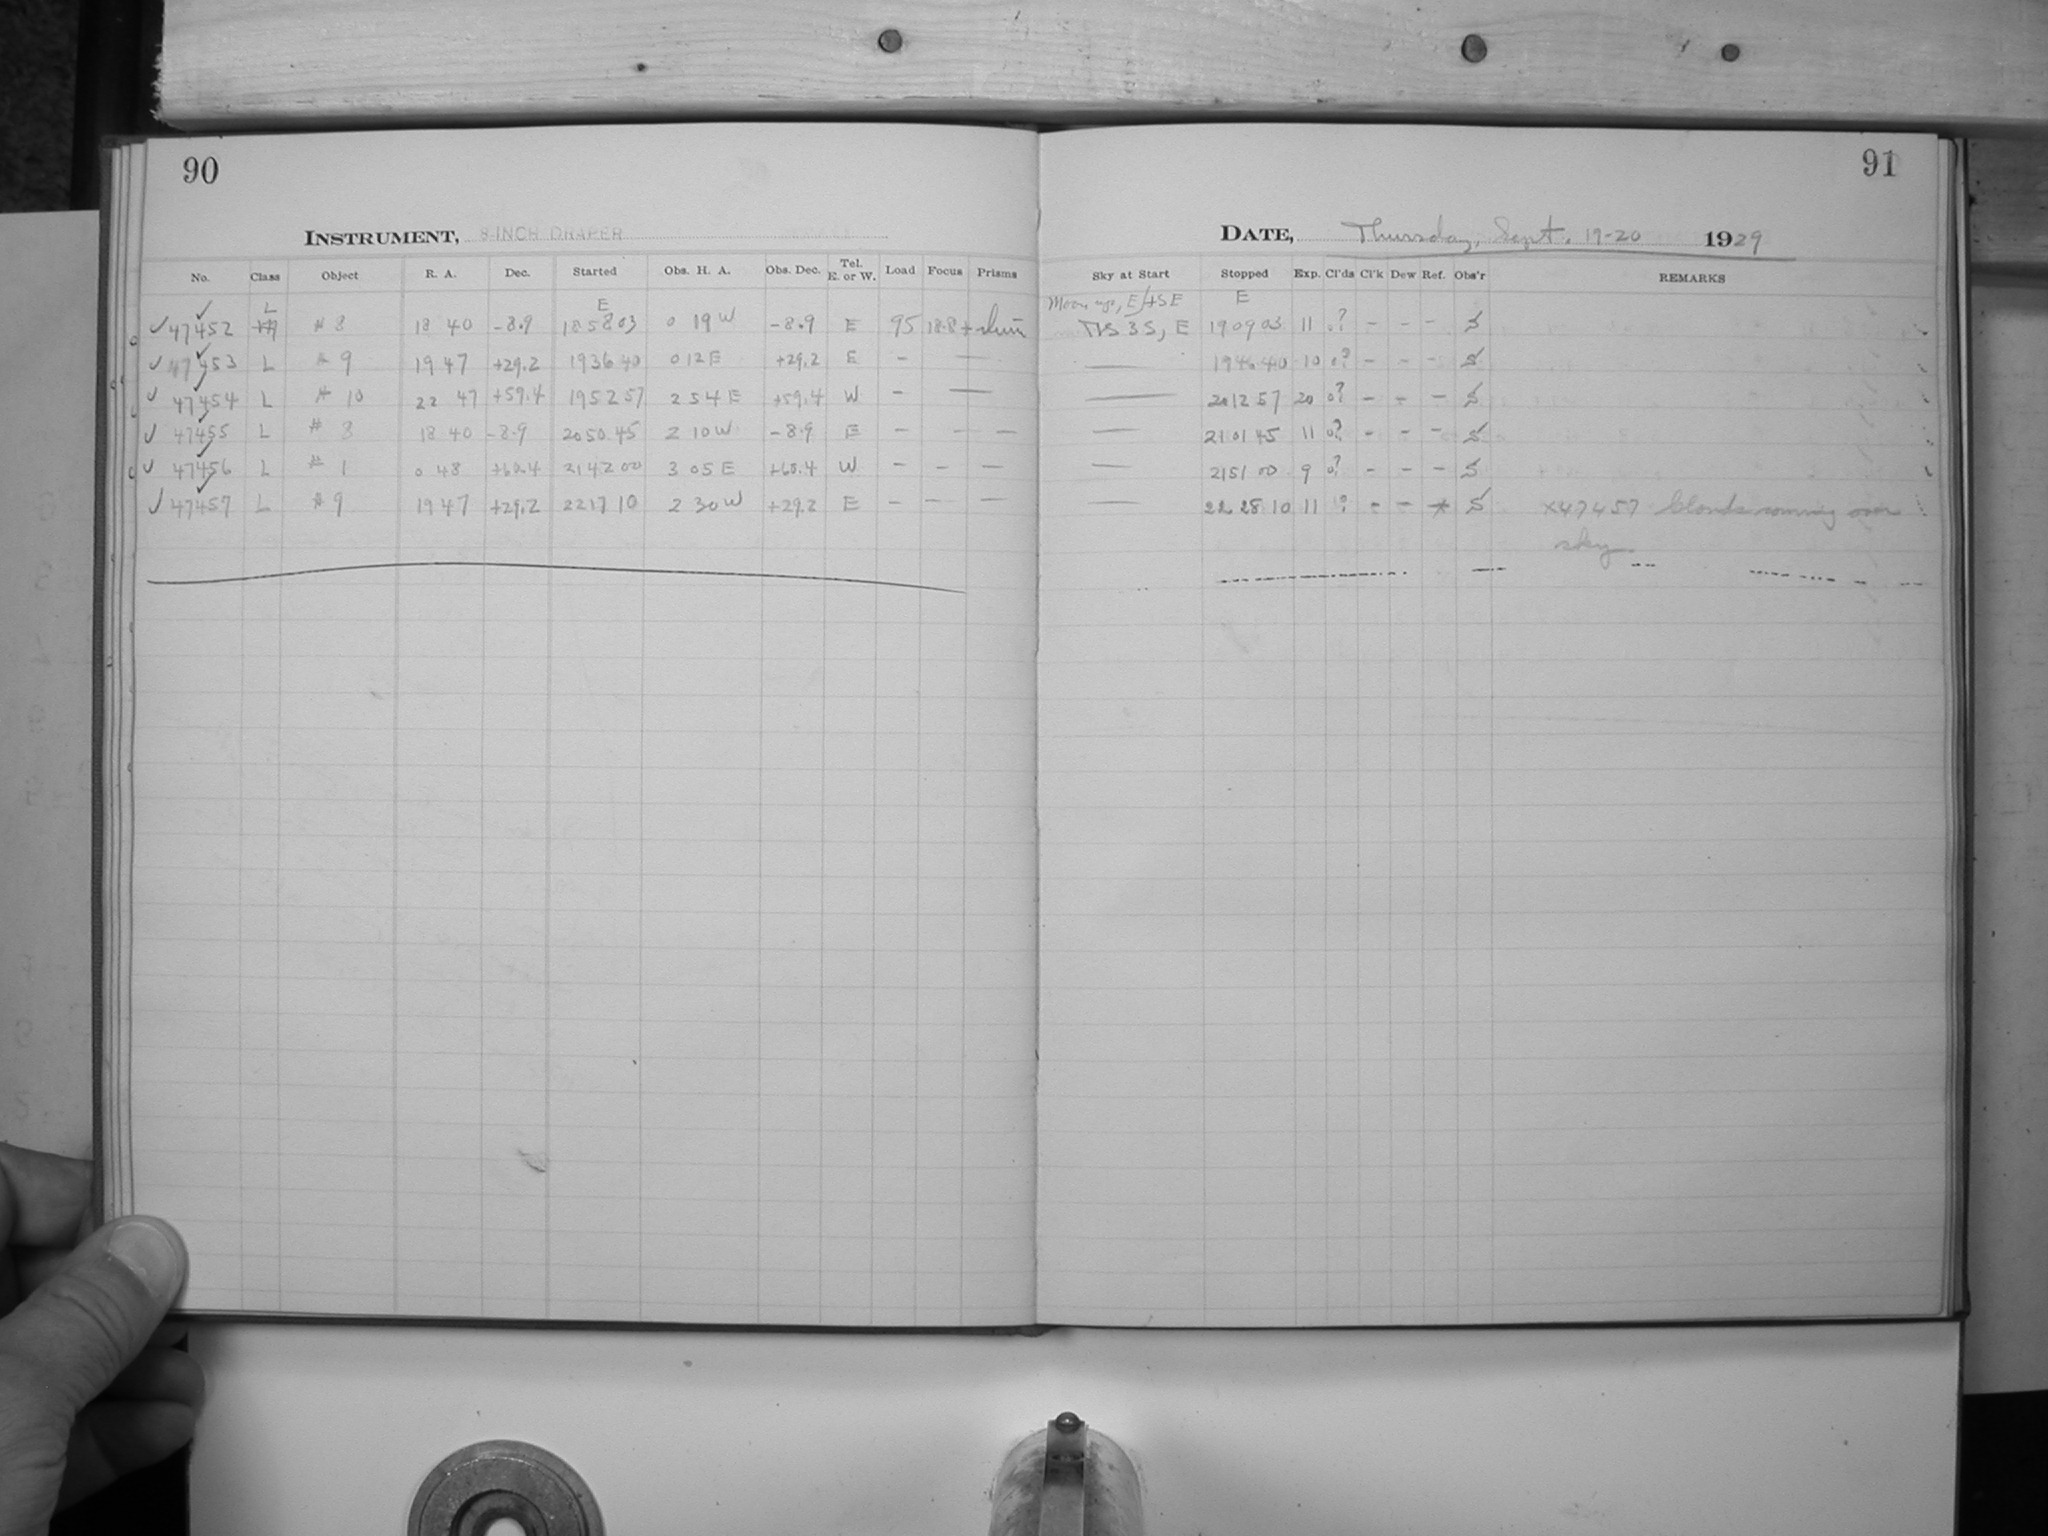 90
91
INSTRUMENT, 8-INCH DRAPER
DATE, Thursday, Sept. 19-20 1929
No. Class Object R. A. Dec. Started Obs. H. A. Obs. Dec. Tel. E. or W. Load Focus Prisms Sky at Start Stopped Exp. Cl'ds Cl'k Dew Ref. Obs'r REMARKS
L E Moon up, E E
47452 # 8 18 40 -8.9 18 58 03 0 19 W -8.9 E 95 18.8 3 S, E 19 09 03 11 0? - - - S
47453 L # 9 19 47 +29.2 19 36 40 0 12 E +29.2 E - — — 19 46 40 10 0? - - - S
47454 L # 10 22 47 +59.4 19 52 57 2 54 E +59.4 W - — — 20 12 57 20 0? - - - S
47455 L # 8 18 40 -8.9 20 50 45 2 10 W -8.9 E - - - — 21 01 45 11 0? - - - S
47456 L # 1 0 48 +60.4 21 42 00 3 05 E +60.4 W - - - — 21 51 00 9 0? - - - S
47457 L # 9 19 47 +29.2 22 17 10 2 30 W +29.2 E - - - — 22 28 10 11 ? - - * S ×47457 Clouds coming over
sky